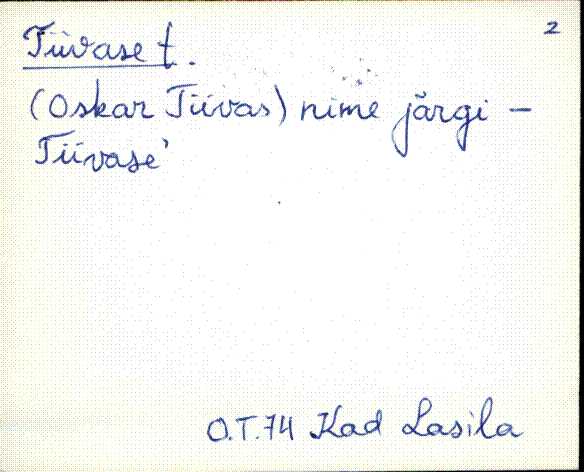 2
Tiivase t.
(Oskar Tiivas) nime järgi –
Tiivase'
O.T.74 Kad Lasila